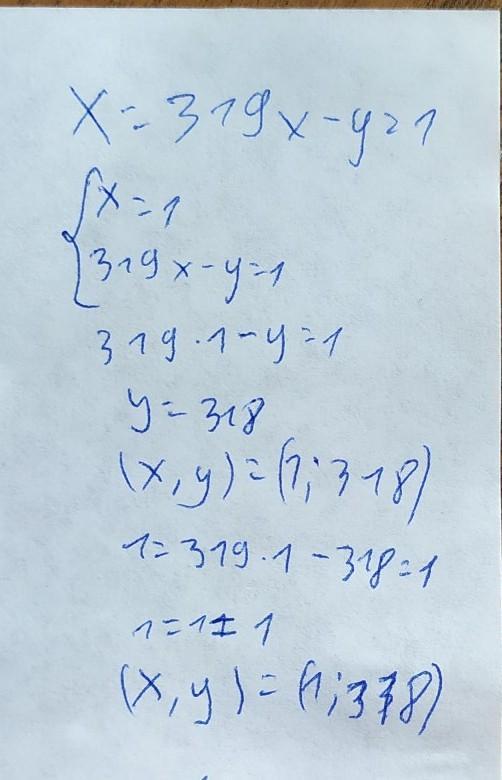 x = 319x - y = 1
{ x = 1
319x - y = 1
319 · 1 - y = 1
y = 318
(x, y) = (1; 318)
1 = 319 · 1 - 318 = 1
1 = 1 = 1
(x, y) = (1; 318)